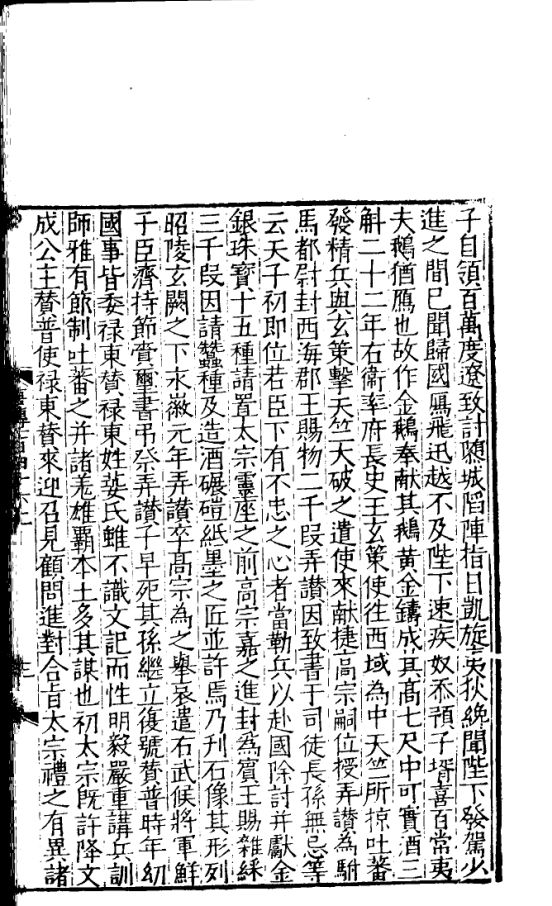 子自領百萬度遼致討隳城陷陣指日凱旋夷狄纔聞陛下發駕少
進之間已聞歸國鴈飛迅越不及陛下速疾奴忝預子壻喜百常夷
夫鵝猶鴈也故作金鵝奉献其鵝黄金鑄成其髙七尺中可實酒三
斛二十二年右衛率府長史王玄策使往西域為中天竺所掠吐蕃
發精兵與玄策擊天竺大破之遣使來献捷高宗嗣位授弄讃為駙
馬都尉封西海郡王賜物二千段弄讃因致書于司徒長孫無忌等
云天子初即位若臣下有不忠之心者當勒兵以赴國除討并獻金
銀珠寳十五種請置太宗靈座之前高宗嘉之進封為賔王賜雜綵
三千段因請蠶種及造酒碾磑紙墨之匠並許焉乃刋石像其形列
昭陵玄闕之下永徽元年弄讃卒髙宗為之舉哀遣右武候將軍鮮
于臣濟持節賫璽書弔祭弄讃子早死其孫繼立復號賛普時年幼
國事皆委禄東賛禄東姓䓹氏雖不識文記而性明毅嚴重講兵訓
師雅有節制吐蕃之并諸羌雄覇本土多其謀也初太宗旣許降文
成公主賛普使禄東賛來迎召見顧問進對合旨太宗禮之有異諸